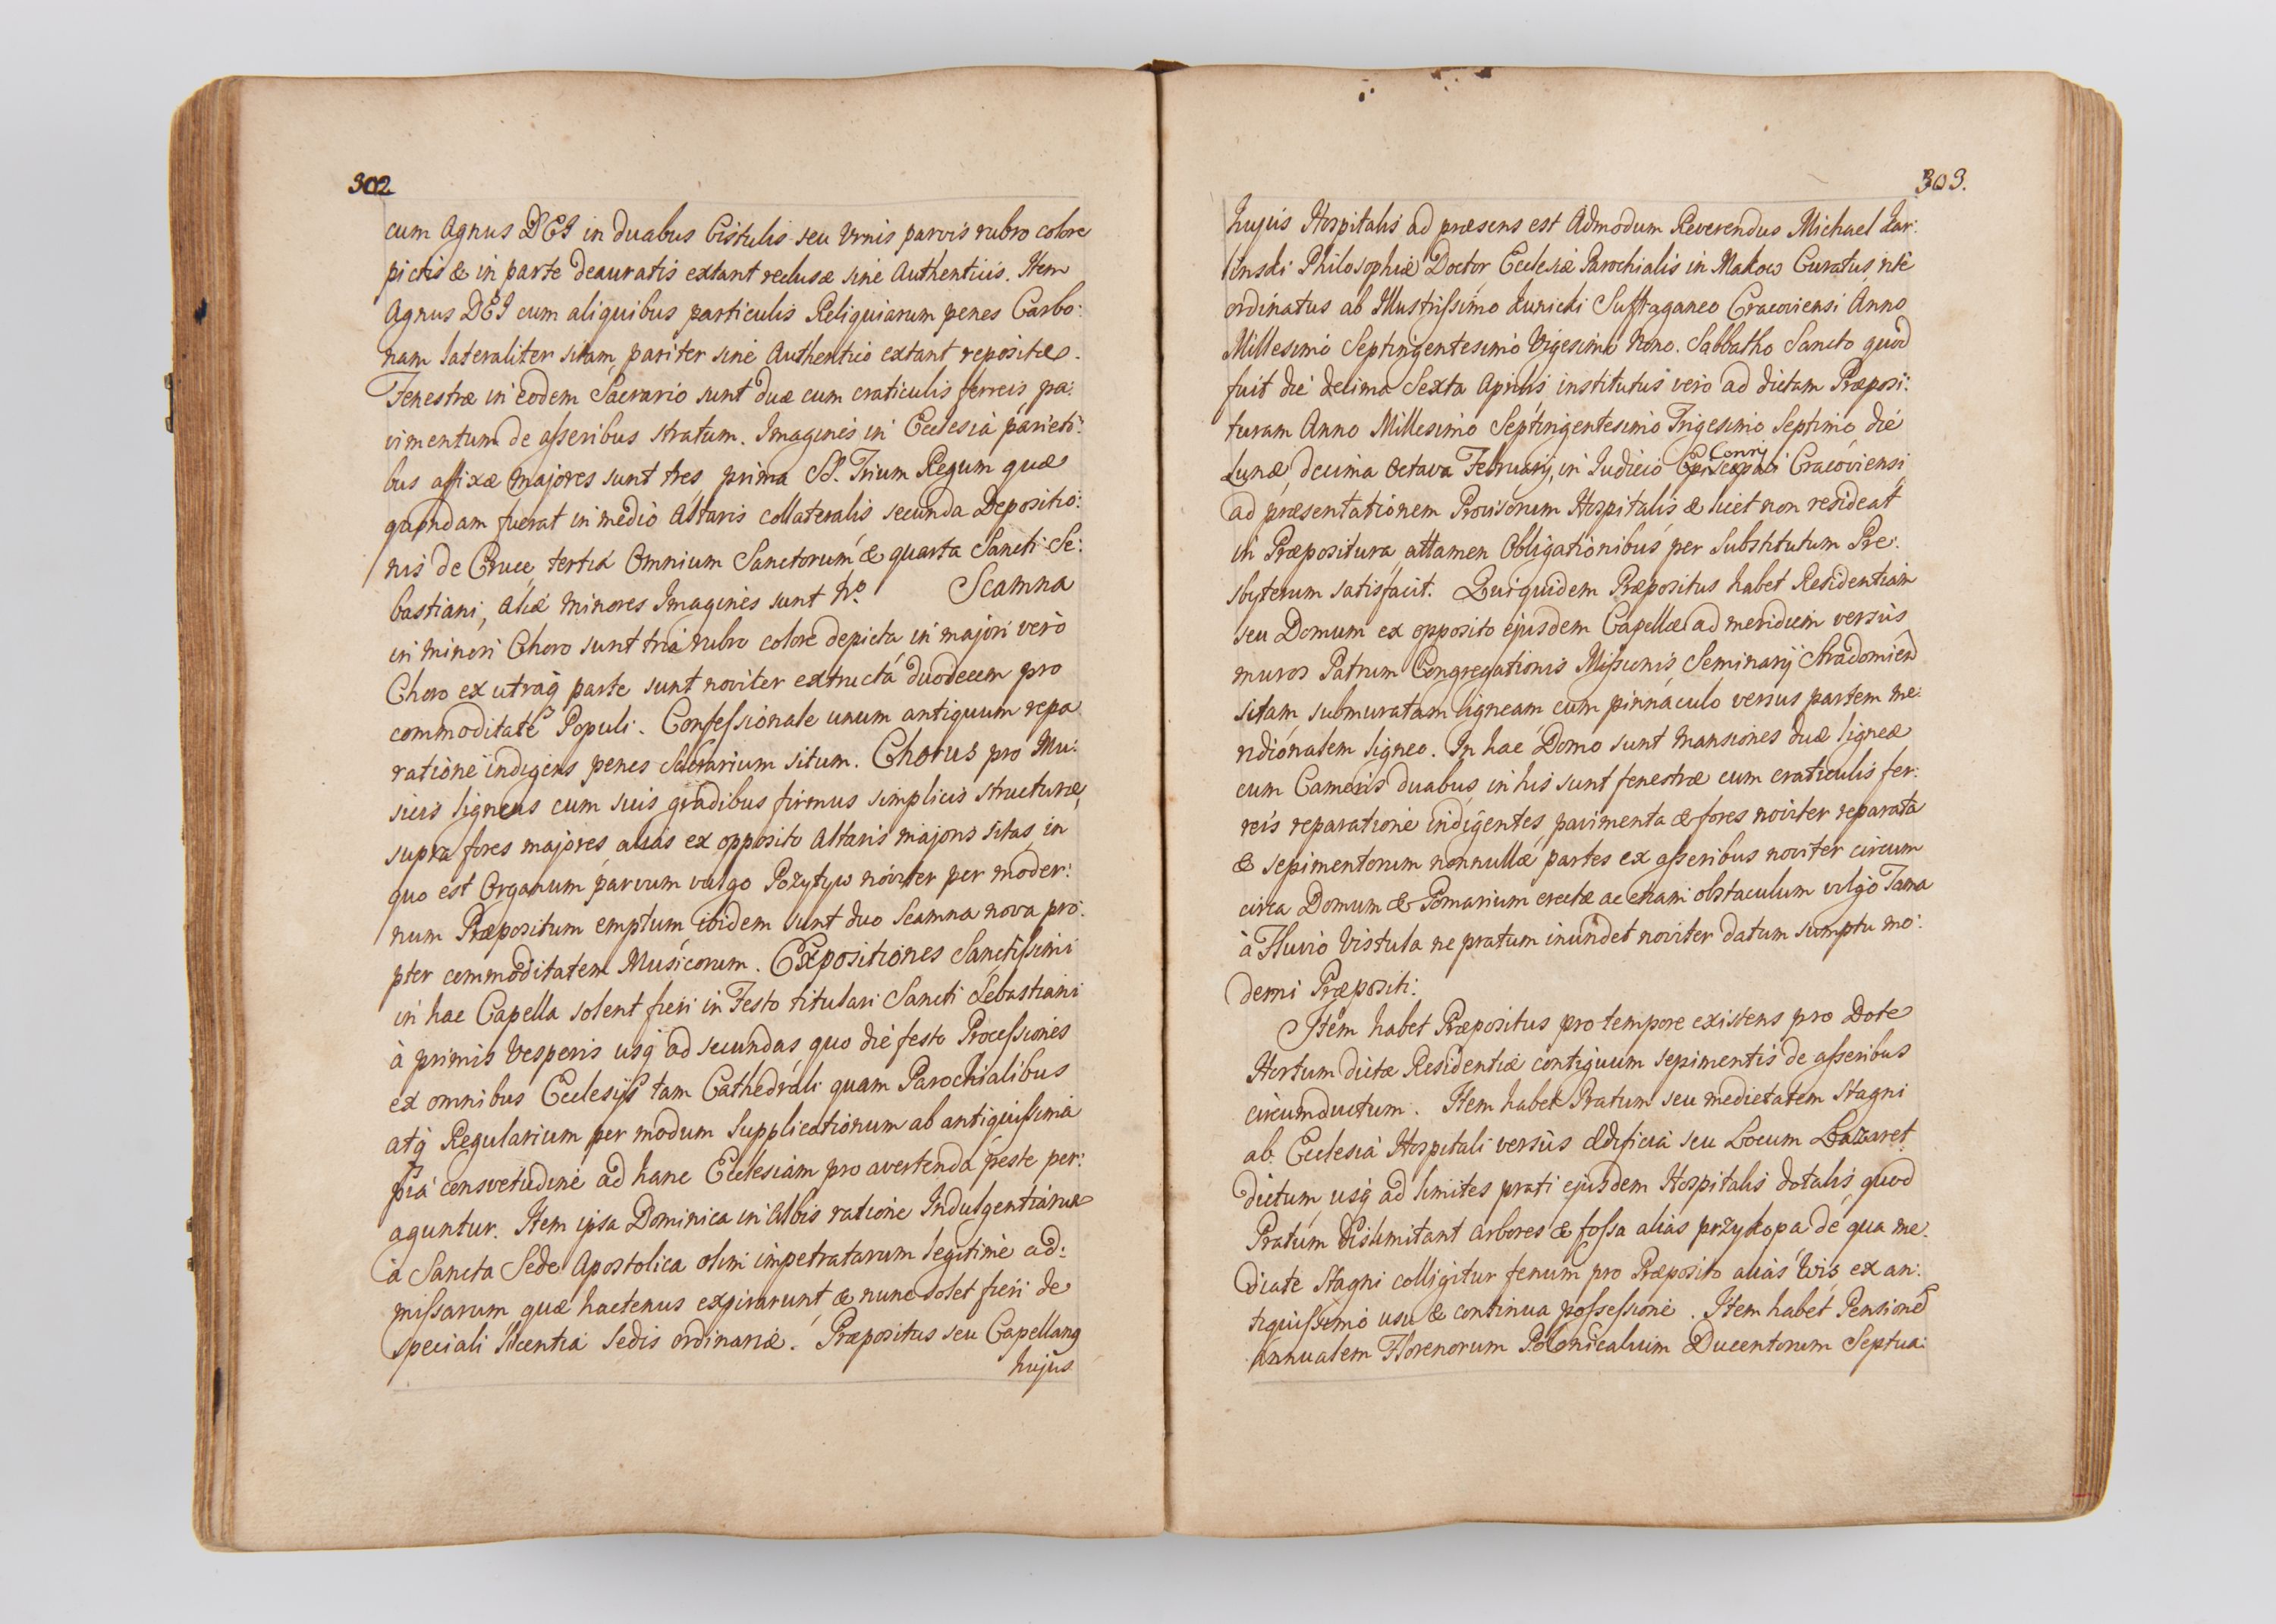 302
cum Agnus DEI in duabus Cistulis seu Vrnis parvis rubro colore
pictis & in parte deauratis extant reclusæ sine Authenticis. Item
Agnus DEI cum aliquibus particulis Reliquiarum penes Carbo:
nam lateraliter sitam pariter sine Authentico extant repositæ.
Fenestræ in eodem Sacrario sunt duæ cum craticulis ferreis, pa:
vimentum de asseribus stratum. Imagines in Ecclesia parieti:
bus affixæ majores sunt tres prima SS. Trium Regum quæ
quondam fuerat in medio Altaris collateralis secunda Depositio:
nis de Cruce tertia Omnium Sanctorum & quarta Sancti Se:
bastiani, Aliæ minores Imagines sunt No. Scamna
in minori Choro sunt tria rubro colore depicta in majori vero
Choro ex utraq parte sunt noviter extructa duodecem pro
commoditate Populi. Confessionale unum antiquum repa
ratione indigens penes Sacrarium situm. Chorus pro Mu:
sicis ligneus cum suis gradibus firmus simplicis structuræ,
supra fores majores alias ex opposito Altaris majoris sitas, in
quo est Organum parvum vulgo Pozytyw noviter per moder:
num Præpositum emptum ibidem sunt duo Scamna nova pro:
pter commoditatem Musicorum. Expositiones Sanctissimi
in hac Capella solent fieri in Festo titulari Sancti Sebastiani
à primis Vesperis usq ad secundas quo die festo Processiones
ex omnibus Ecclesijs tam Cathedrali quam Parochialibus
atq Regularium per modum Supplicationum ab antiquissima
pia consvetudine ad hanc Ecclesiam pro avertenda peste per:
aguntur. Item ipsa Dominica in Albis ratione Indulgentiarum
à Sancta Sede Apostolica olim impetratarum legitime ad:
missarum quæ hactenus expirarunt & nunc solet fieri de
speciali licentia Sedis ordinariæ. Præpositus seu Capellanq
hujus
303.
hujus Hospitalis ad præsens est Admodum Reverendus Michael
Philosophiæ Doctor Ecclesiæ Parochialis in Makow Curatus
ordinatus ab Illustrissimo Kunicki Suffraganeo Cracoviensi Anno
Millesimo Septingentesimo Vigesimo Nono. Sabbatho Sancto quod
fuit die decima Sexta Aprilis institutus vero ad dictam Præposi:
turam Anno Millesimo Septingentesimo Trigesimo Septimo die
Lunæ, decima Octava Februarij, in Judicio Conrij Cracoviensi
ad præsentationem Provisorum Hospitalis & licet non resideat
in Præpositura, attamen Obligationibus per Substitutum Pre:
sbyterum satisfacit. Qui quidem Præpositus habet Residentiam
seu Domum ex opposito ejusdem Capellæ ad meridiem versus
muros Patrum Congregationis Missionis Seminarij Stradomien
sitam submuratam ligneam cum pinnaculo versus partem me:
ridionalem ligneo. In hac Domo sunt Mansiones duæ ligneæ
cum Cameris duabus, in his sunt fenestræ cum craticulis fer:
reis reparatione indigentes, pavimenta & fores noviter reparata
& sepimentorum nonnullæ partes ex asseribus noviter circum
circa Domum & Pomarium erectæ ac etiam obstaculum vulgo Tama
à Fluvio Vistula ne pratum inundet noviter datum sumptu mo:
derni Præpositi:
Item habet Præpositus pro tempore existens pro Dote
Hortum dictæ Residentiæ contiguum sepimentis de asseribus
circumductum. Item habet Pratum seu medietatem Stagni
ab Ecclesia Hospitali versus Ædificia seu Locum Lazaret
dictum, usq ad limites prati ejusdem Hospitalis dotalis quod
Pratum dislimitant arbores & fossa alias przykopa de qua me:
diate Stagni colligitur fenum pro Præposito alias Wis ex an:
tiquissimo usu & continua possessione. Item habet Pensione
annualem Florenorum Polonicalium Ducentorum Septua: